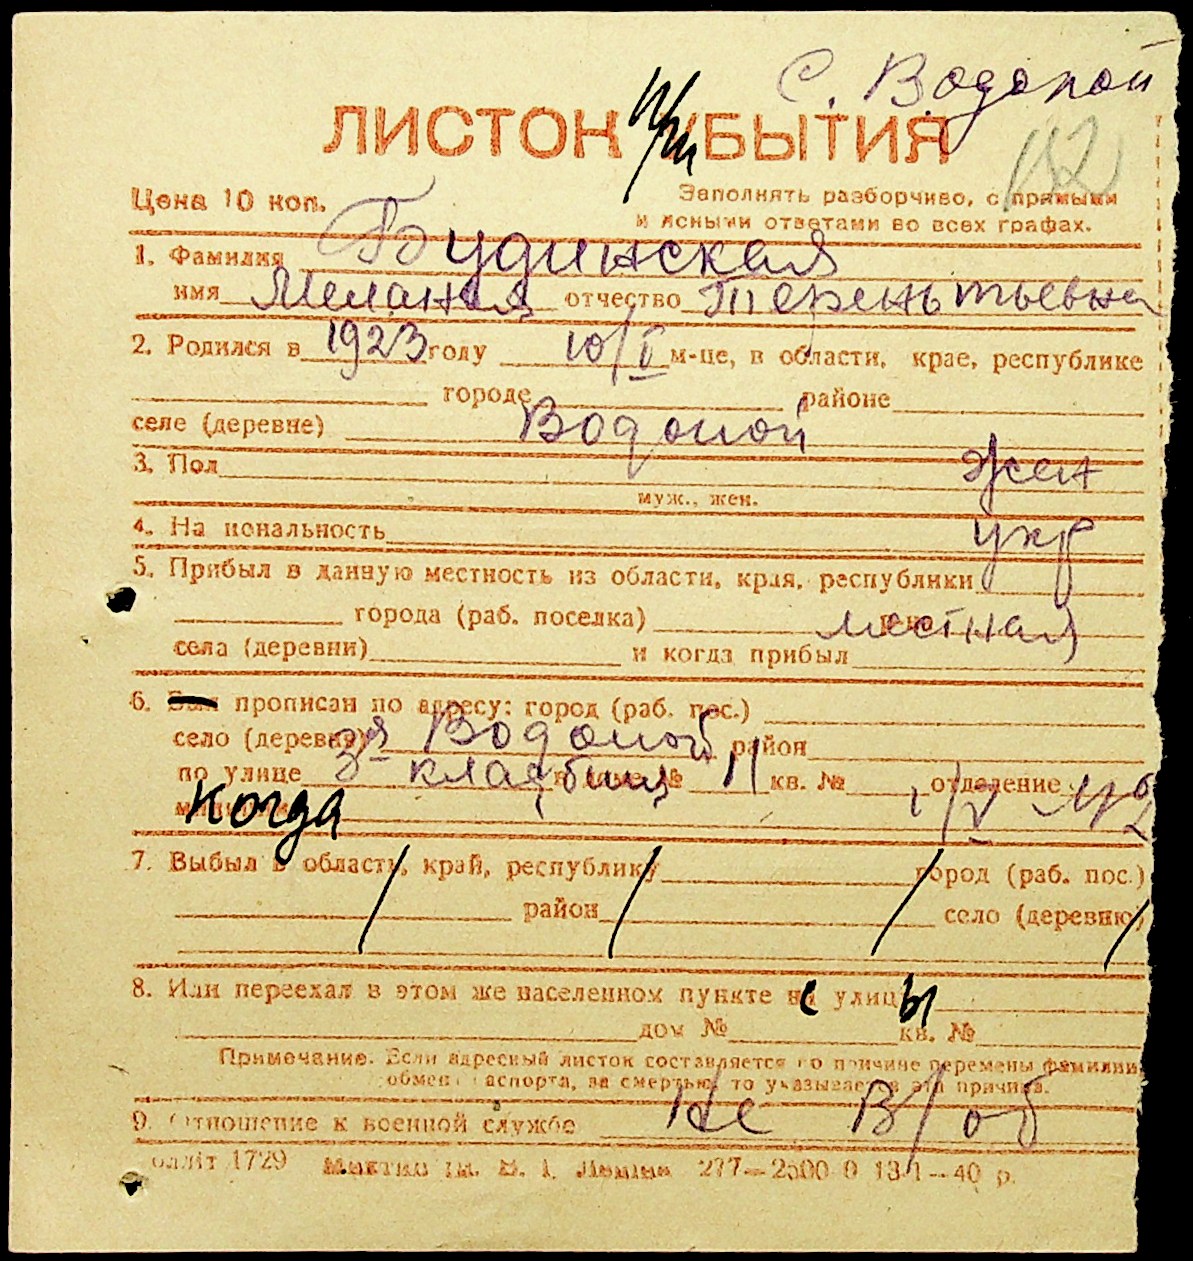 С. Водопой
ЛИСТОК УБЫТИЯ
112
Цена 10 коп.
Заполнять разборчиво, с прямыми
и ясными ответами во всех графах.
1. Фамилия Будинская
имя Мелания отчество Терентьевна
2. Родился в 1923 году 10/I м-це, в области, крае, республике
городе районе
селе (деревне) Водопой
3. Пол жен
муж., жен.
4. Национальность укр
5. Прибыл в данную местность из области, края, республики
города (раб. поселка) местная
села (деревни) и когда прибыл
6. Был прописан по адресу: город (раб. пос.)
село (деревня) Водопой район
по улице 3я кладбищ в доме № 11 кв. № отделение
милиции Когда 1/V 42
7. Выбыл в область, край, республику город (раб. пос.)
район село (деревню)
8. Или переехал в этом же населенном пункте с улицы
дом № кв. №
Примечание. Если адресный листок составляется по причине перемены фамилии,
обмена паспорта, за смертью, то указывается эта причина.
9. Отношение к военной службе Не в/об
1729 277—2500 0 13-1—40 р.